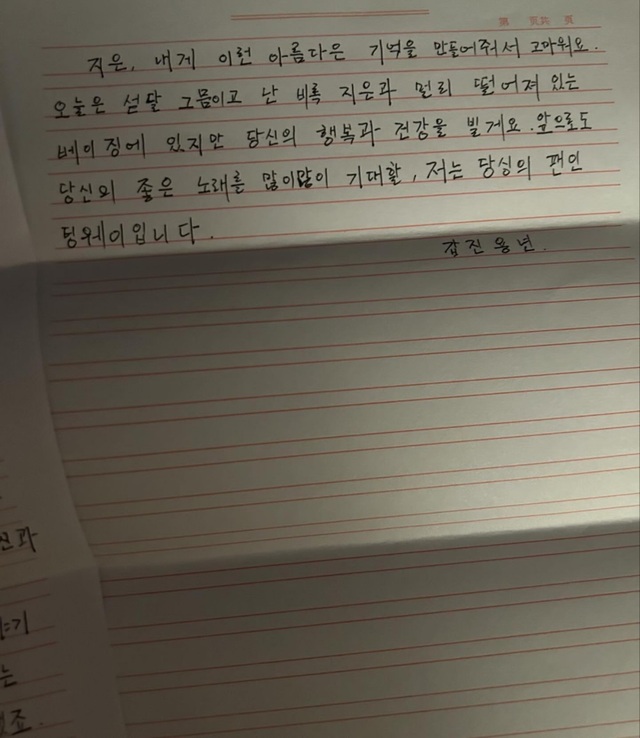 第 页共 页
지은, 내게 이런 아름다운 기억을 만들어줘서 고마워요.
오늘은 섣달 그믐이고 난 비록 지은과 멀리 떨어져 있는
베이징에 있지만 당신의 행복과 건강을 빌게요. 앞으로도
당신의 좋은 노래를 많이많이 기대할, 저는 당싱의 팬인
덩웨이입니다.
갑진용년.
신과
는
죠.